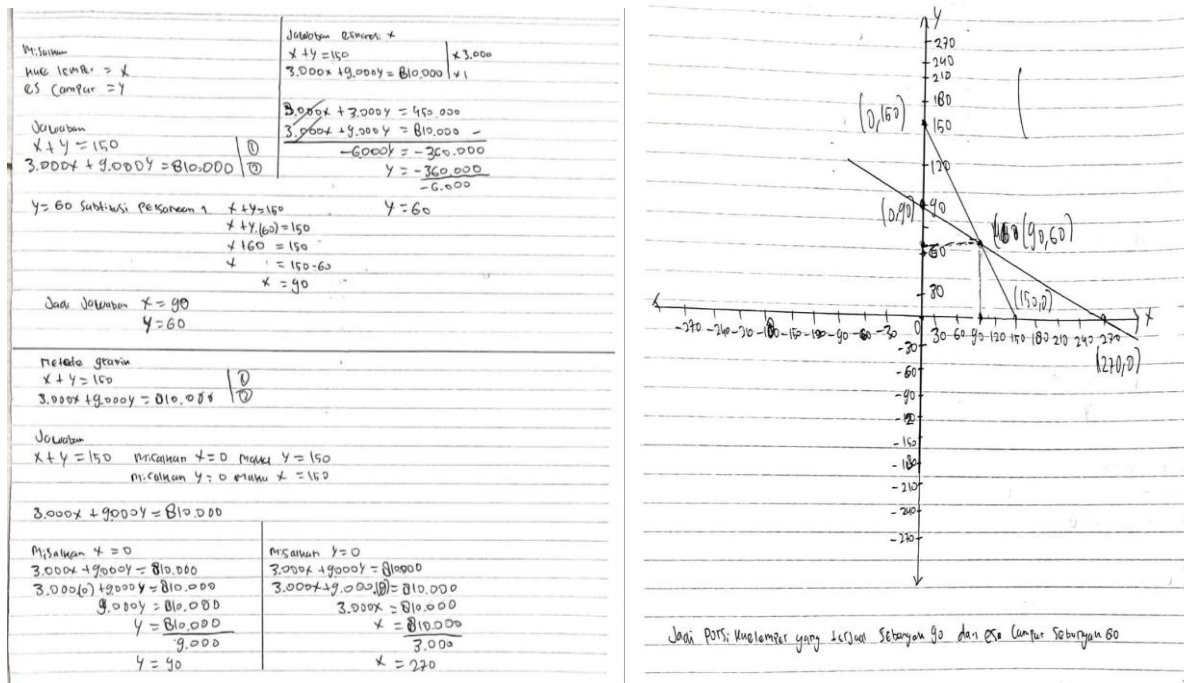 Misalkan
kue lemper = x
es campur = y
Jawaban
x + y = 150 | ①
3.000x + 9.000y = 810.000 | ②
Jawaban eliminasi x
x + y = 150 | x 3.000
3.000x + 9.000y = 810.000 | x 1
3.000x + 3.000y = 450.000
3.000x + 9.000y = 810.000 -
-6000y = -360.000
y = -360.000
-6.000
y = 60
y = 60 Subtitusi Persamaan 1 x + y = 150
x + y.(60) = 150
x + 60 = 150
x = 150 - 60
x = 90
Jadi Jawaban x = 90
y = 60
Metode grafik
x + y = 150 | ①
3.000x + 9.000y = 810.000 | ②
Jawaban
x + y = 150 misalkan x = 0 maka y = 150
misalkan y = 0 maka x = 150
3.000x + 9.000y = 810.000
Misalkan x = 0
3.000x + 9000y = 810.000
3.000(0) + 9000y = 810.000
9.000y = 810.000
y = 810.000
9.000
y = 90
Misalkan y = 0
3.000x + 9000y = 810000
3.000x + 9.000(0) = 810.000
3.000x = 810.000
x = 810.000
3.000
x = 270
y
270
240
210
180
(0,150) 150
120
(0,90) 90
(90,60)
60
30
(150,0)
x
-270 -240 -210 -180 -150 -120 -90 -60 -30 0 30 60 90 120 150 180 210 240 270
(270,0)
-30
-60
-90
-120
-150
-180
-210
-240
-270
Jadi Porsi kue lemper yang terjual Sebanyak 90 dan es campur Sebanyak 60